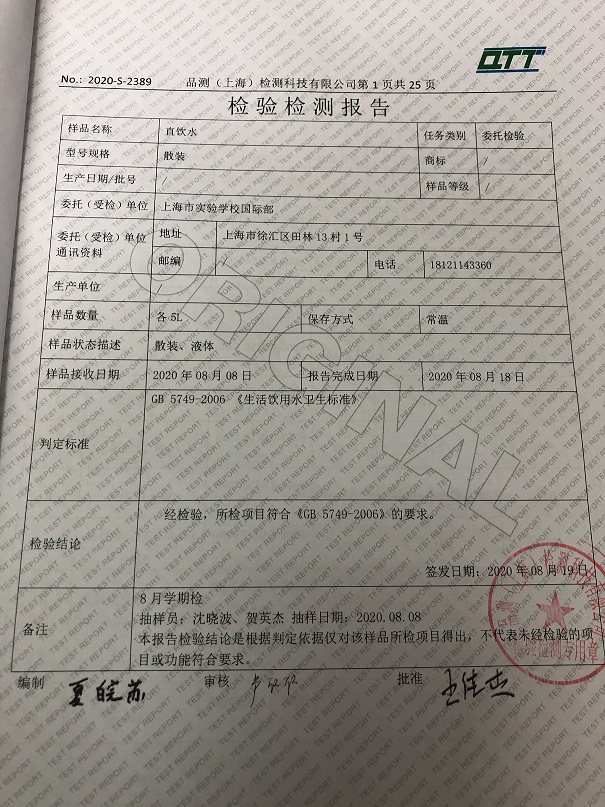 QTT
No.: 2020-S-2389 品测（上海）检测科技有限公司第 1 页共 25 页
检验检测报告
样品名称 直饮水 任务类别 委托检验
型号规格 散装 商标 /
生产日期/批号 / 样品等级 /
委托（受检）单位 上海市实验学校国际部
委托（受检）单位通讯资料 地址 上海市徐汇区田林 13 村 1 号
邮编 / 电话 18121143360
生产单位 /
样品数量 各 5L 保存方式 常温
样品状态描述 散装、液体
样品接收日期 2020 年 08 月 08 日 报告完成日期 2020 年 08 月 18 日
判定标准 GB 5749-2006 《生活饮用水卫生标准》
检验结论 经检验，所检项目符合《GB 5749-2006》的要求。
签发日期：2020 年 08 月 19 日
备注 8 月学期检
抽样员：沈晓波、贺英杰 抽样日期：2020.08.08
本报告检验结论是根据判定依据仅对该样品所检项目得出，不代表未经检验的项
目或功能符合要求。
编制 夏皖苏 审核 批准
ORIGINAL
TEST REPORT
检验检测专用章